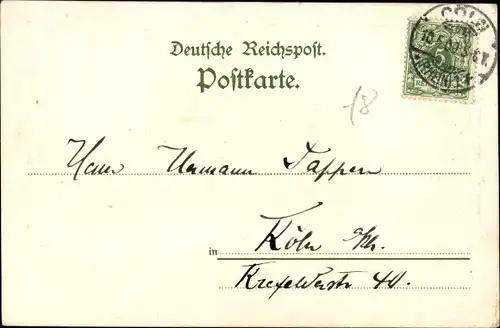 CÖLN
Deutsche Reichspost.
Postkarte.
18
Herrn Hermann Tappen
in Köln a/Rh.
Krefelderstr 40.